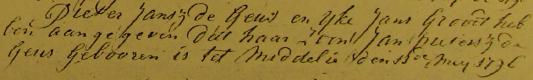 Pieter Jansz de Geus en Yke Jans Groodt heb
ben aangegeven dat haar Zoon Jan pietersz de
Geus Gebooren is tot Middelie den May 1796